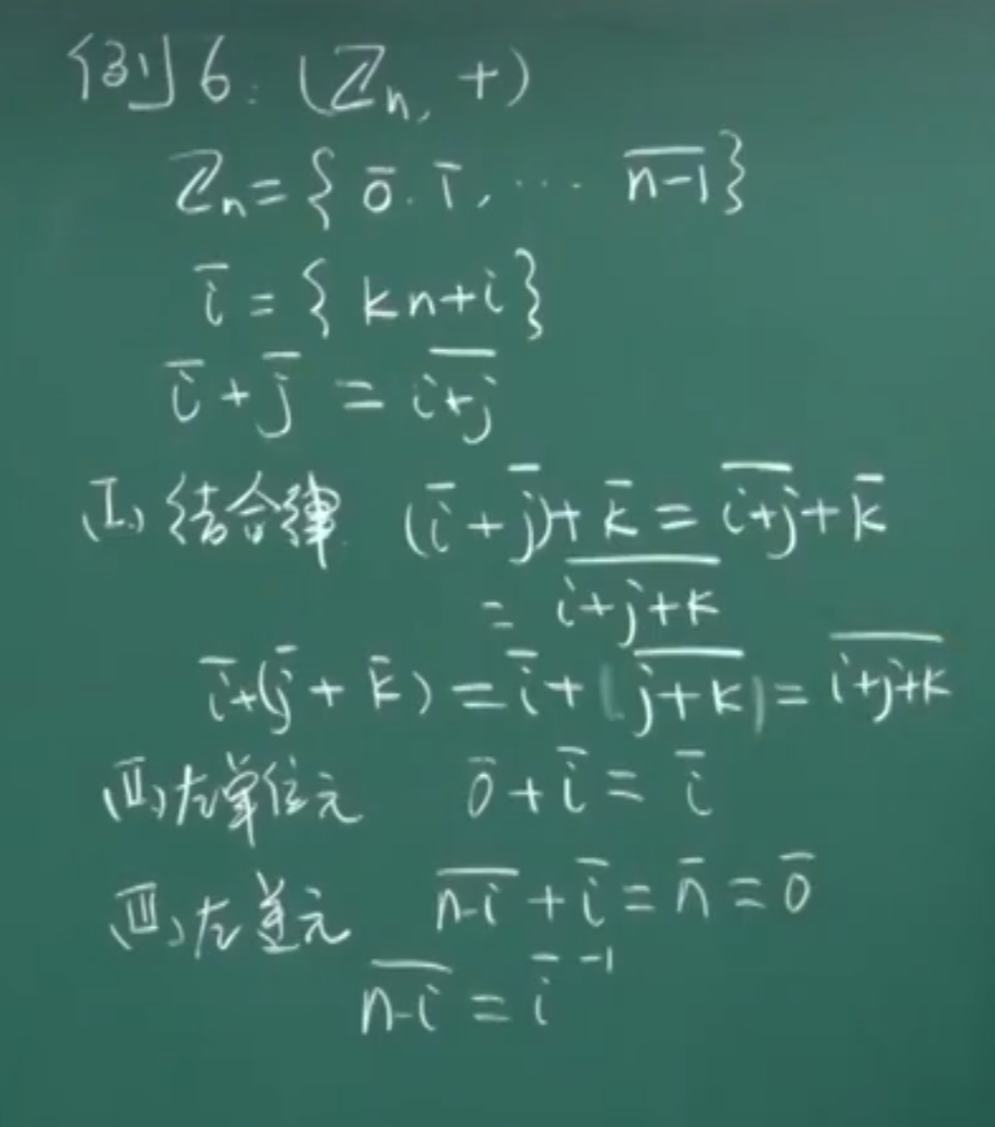 例6: (ℤₙ, +)
ℤₙ = { 0̅. 1̅, ⋯ \overline{n-1} }
i̅ = { kn+i }
i̅ + j̅ = \overline{i+j}
(I) 结合律 (i̅ + j̅) + k̅ = \overline{i+j} + k̅
= \overline{i+j+k}
i̅ + (j̅ + k̅) = i̅ + (\overline{j+k}) = \overline{i+j+k}
(II) 左单位元 0̅ + i̅ = i̅
(III) 左逆元 \overline{n-i} + i̅ = n̅ = 0̅
\overline{n-i} = i̅⁻¹